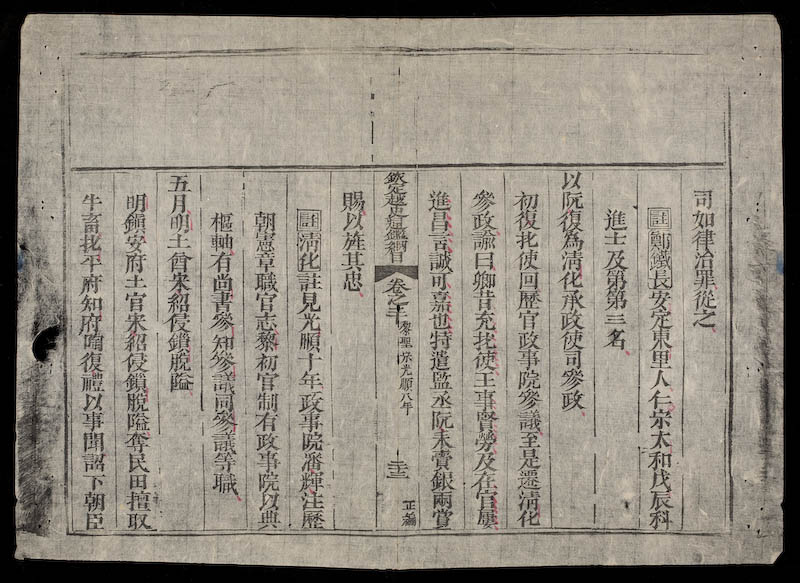 司如律治罪從之
註鄭鐵長安定東里人仁宗太和戊辰科
進士及第第三名
以阮復為淸化承政使司參政
初復北使回歷官政事院參議至是遷淸化
參政諭曰卿昔充北使王事賢勞及在官屢
進昌言誠可嘉也特遣監丞阮未賚銀兩賞
賜以旌其忠
欽定越史通鑑綱目 卷之二十 黎聖宗光順八年 二十三 正編
註淸化註見光順十年政事院潘輝注歷
朝憲章職官志黎初官制有政事院以典
樞軸有尚書參知參議同參議等職
五月明土酋宋紹侵鎖脫隘
明鎭安府土官宋紹侵鎖脫隘奪民田擅取
牛畜北平府知府喃復禮以事聞詔下朝臣